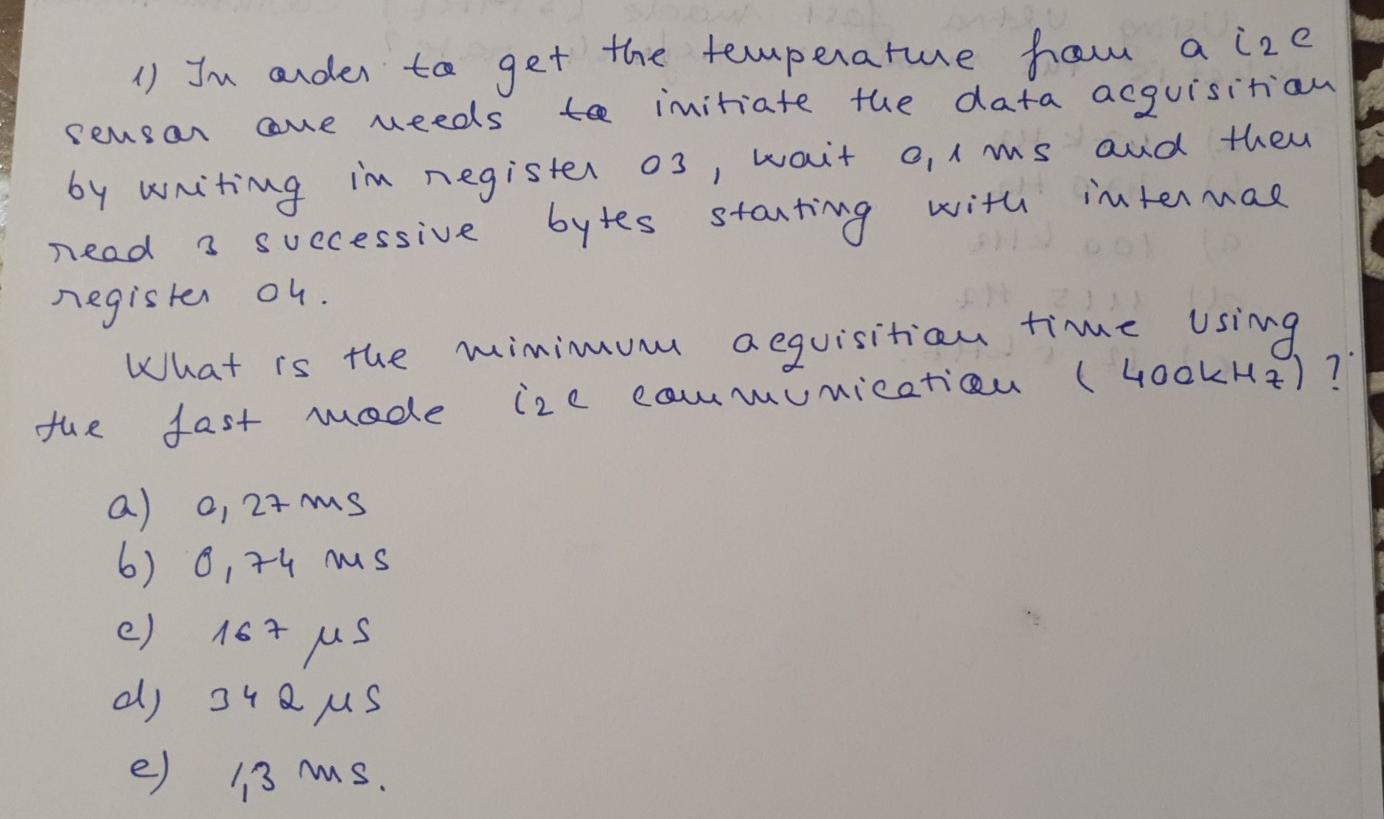 1) In order to get the temperature from a i2c
sensor one needs to initiate the data acquisition
by writing in register 03, wait 0,1 ms and then
read 3 successive bytes starting with internal
register 04.
What is the minimum acquisition time using
the fast mode i2c communication (400kHz)?
a) 0,27 ms
b) 0,74 ms
c) 167 μs
d) 342 μs
e) 1,3 ms.